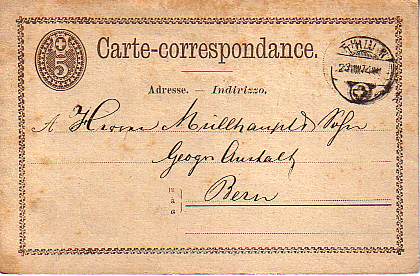 5
Carte-correspondance.
THUN
Adresse. — Indirizzo.
A Herren Müllhaupt & Sohn
Geogr Anstalt
Bern